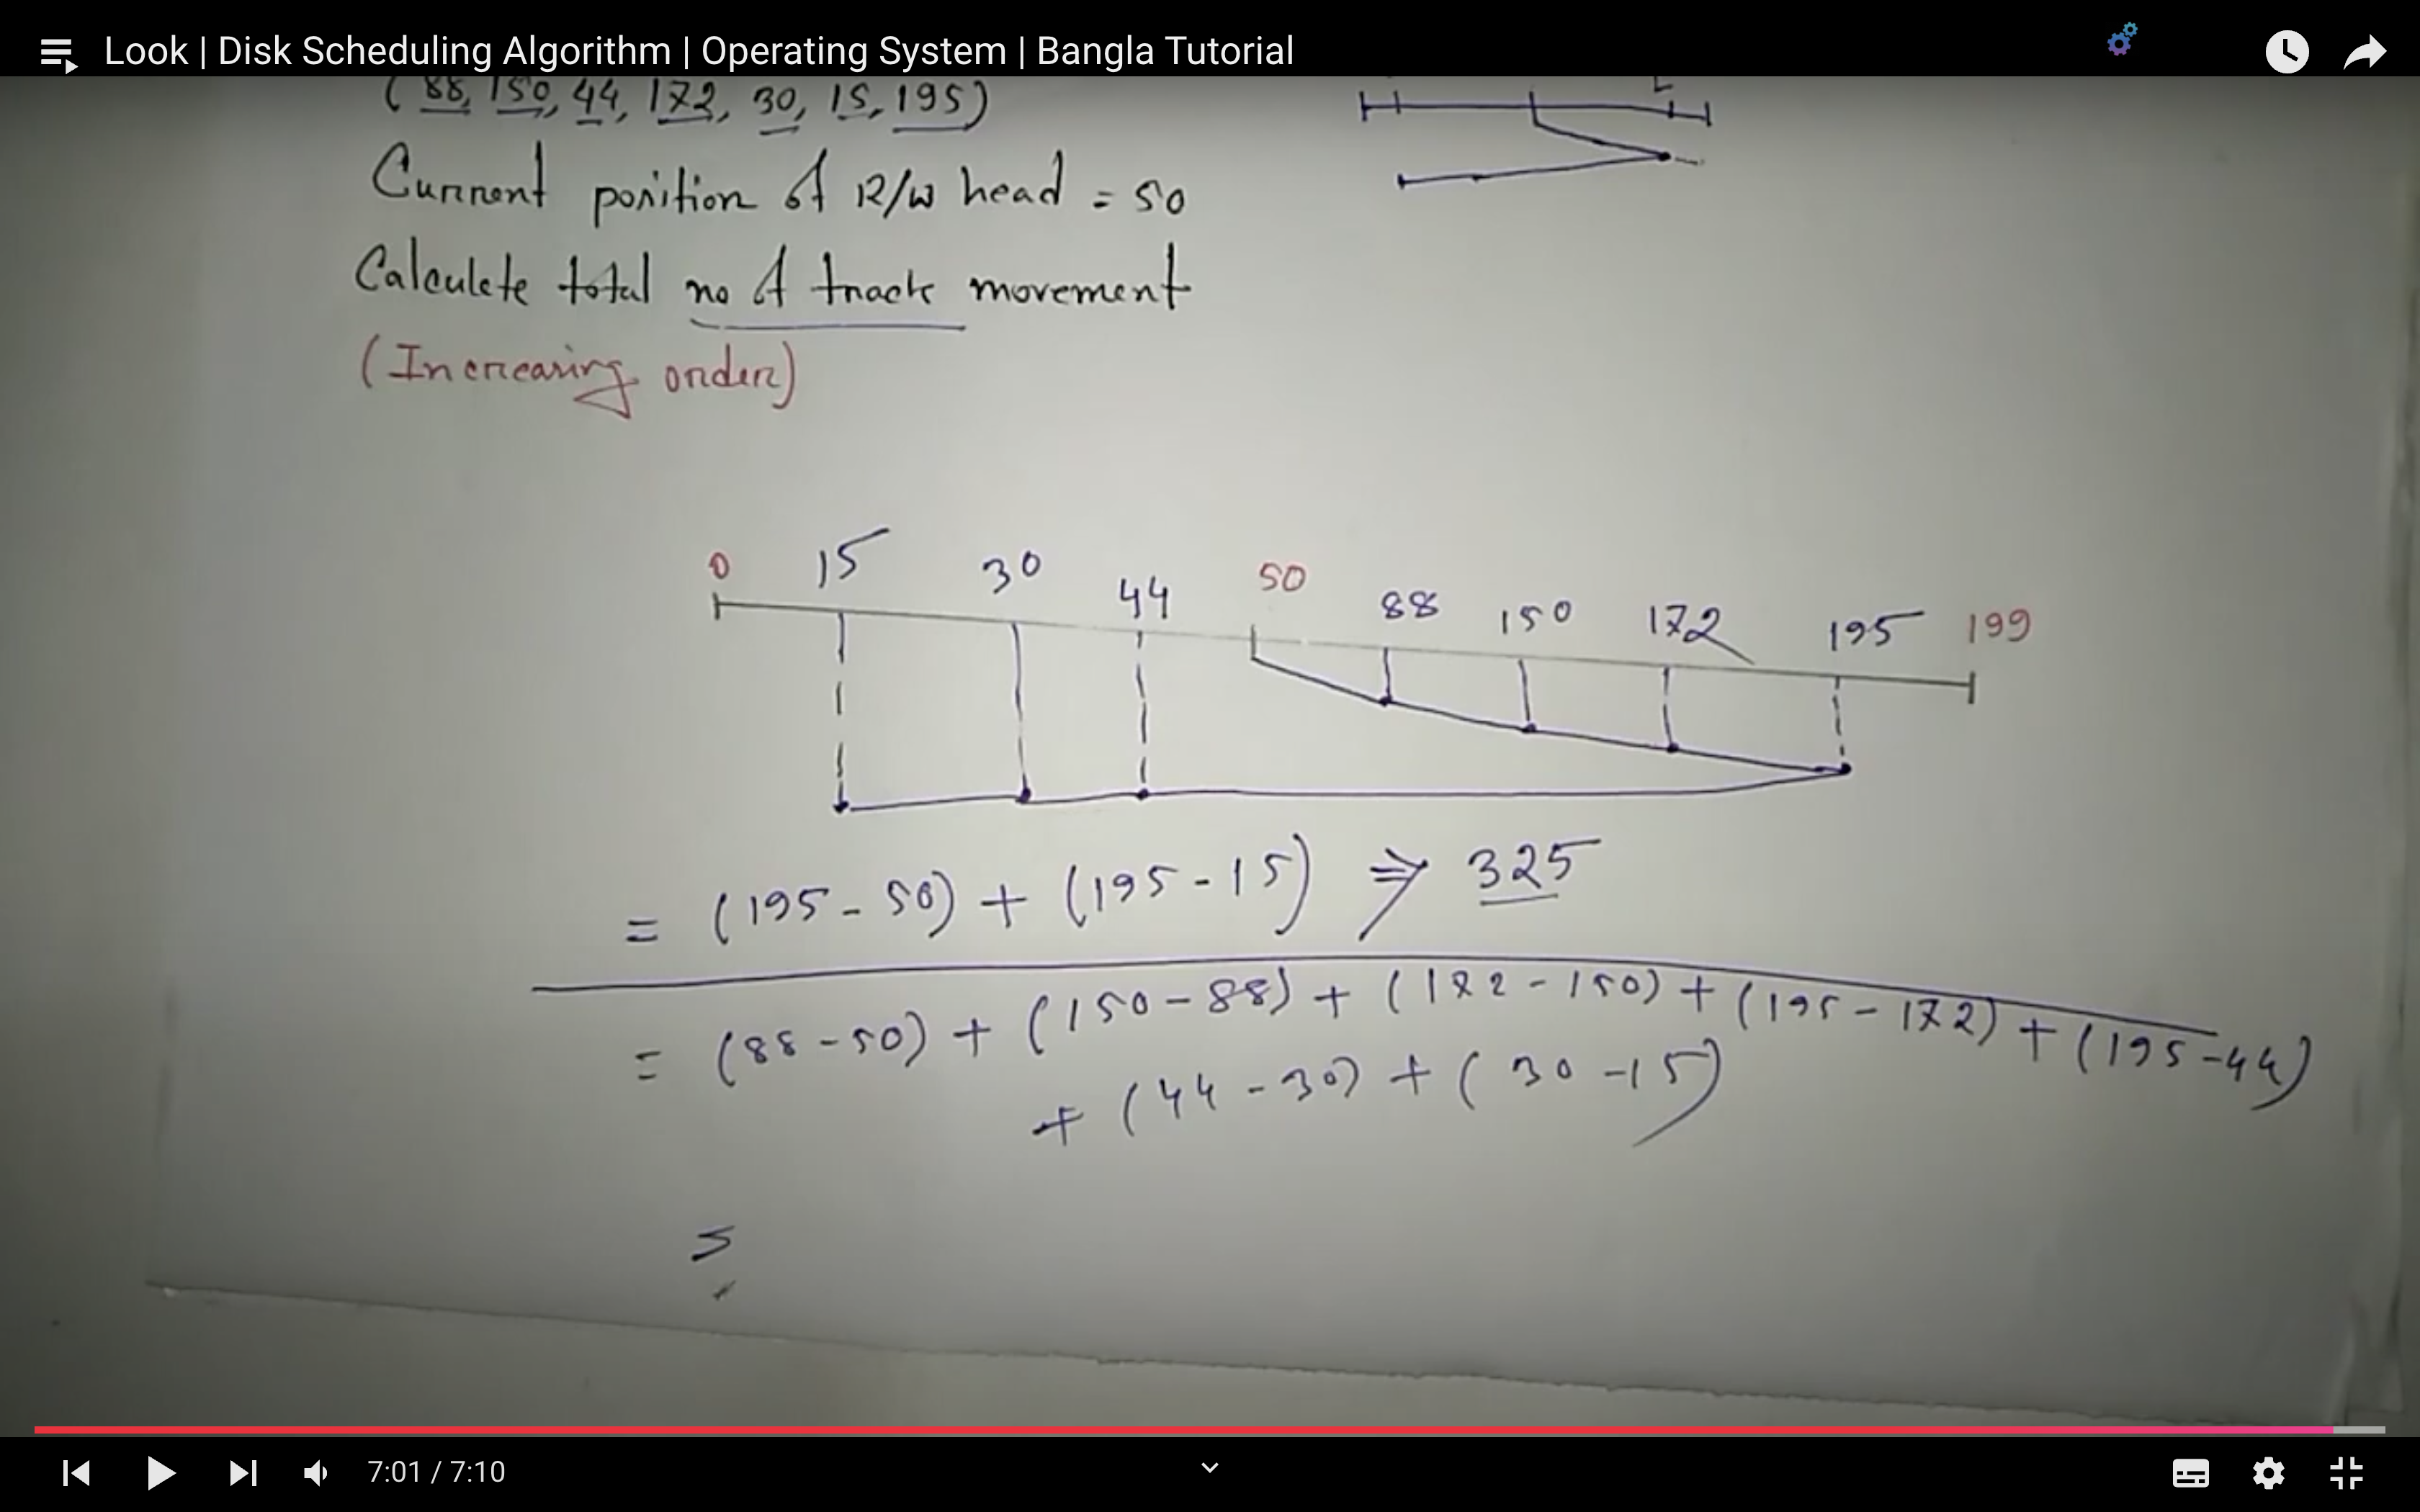 Look | Disk Scheduling Algorithm | Operating System | Bangla Tutorial
(88, 150, 44, 172, 30, 15, 195)
Current position of R/W head = 50
Calculate total no of track movement
(Increasing order)
0 15 30 44 50 88 150 172 195 199
= (195 - 50) + (195 - 15) ⇒ 325
= (88 - 50) + (150 - 88) + (172 - 150) + (195 - 172) + (195 - 44)
+ (44 - 30) + (30 - 15)
=
7:01 / 7:10